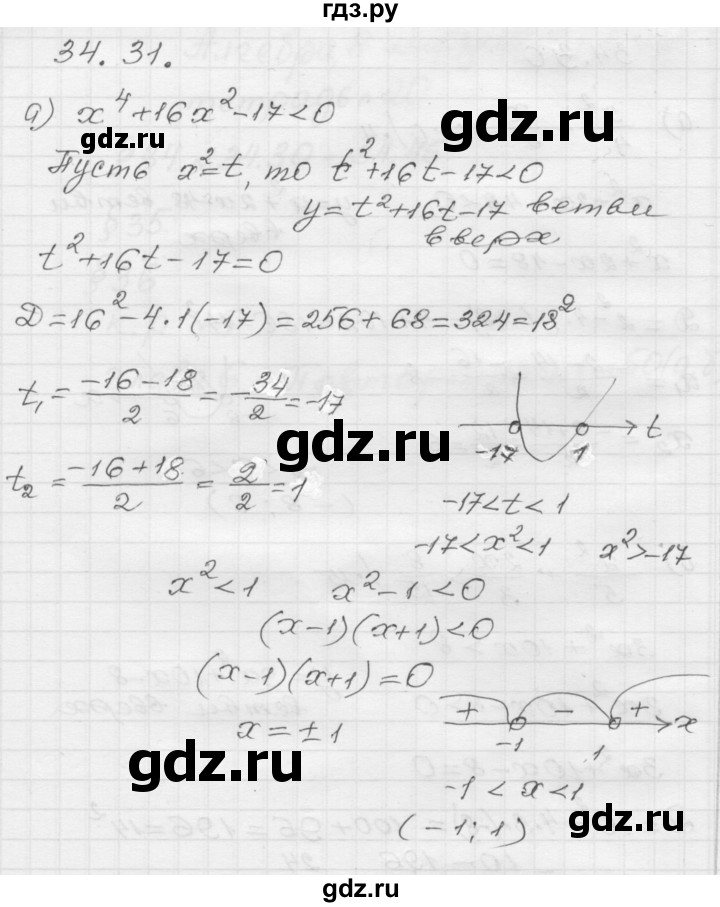 гдз.ру
34. 31.
а) x⁴+16x²-17<0
Пусть x²=t, то t²+16t-17<0
y=t²+16t-17 ветви
вверх
t²+16t-17=0
Д=16²-4·1(-17)=256+68=324=18²
t₁=(-16-18)/2=-34/2=-17
gdz.ru
t
-17 1
t₂=(-16+18)/2=2/2=1
gdz.ru
-17<t<1
-17<x²<1 x²>-17
x²<1 x²-1<0
(x-1)(x+1)<0
(x-1)(x+1)=0
x=±1
+ - + x
-1 1
gdz.ru
-1<x<1
(-1; 1)
gdz.ru
gdz.ru